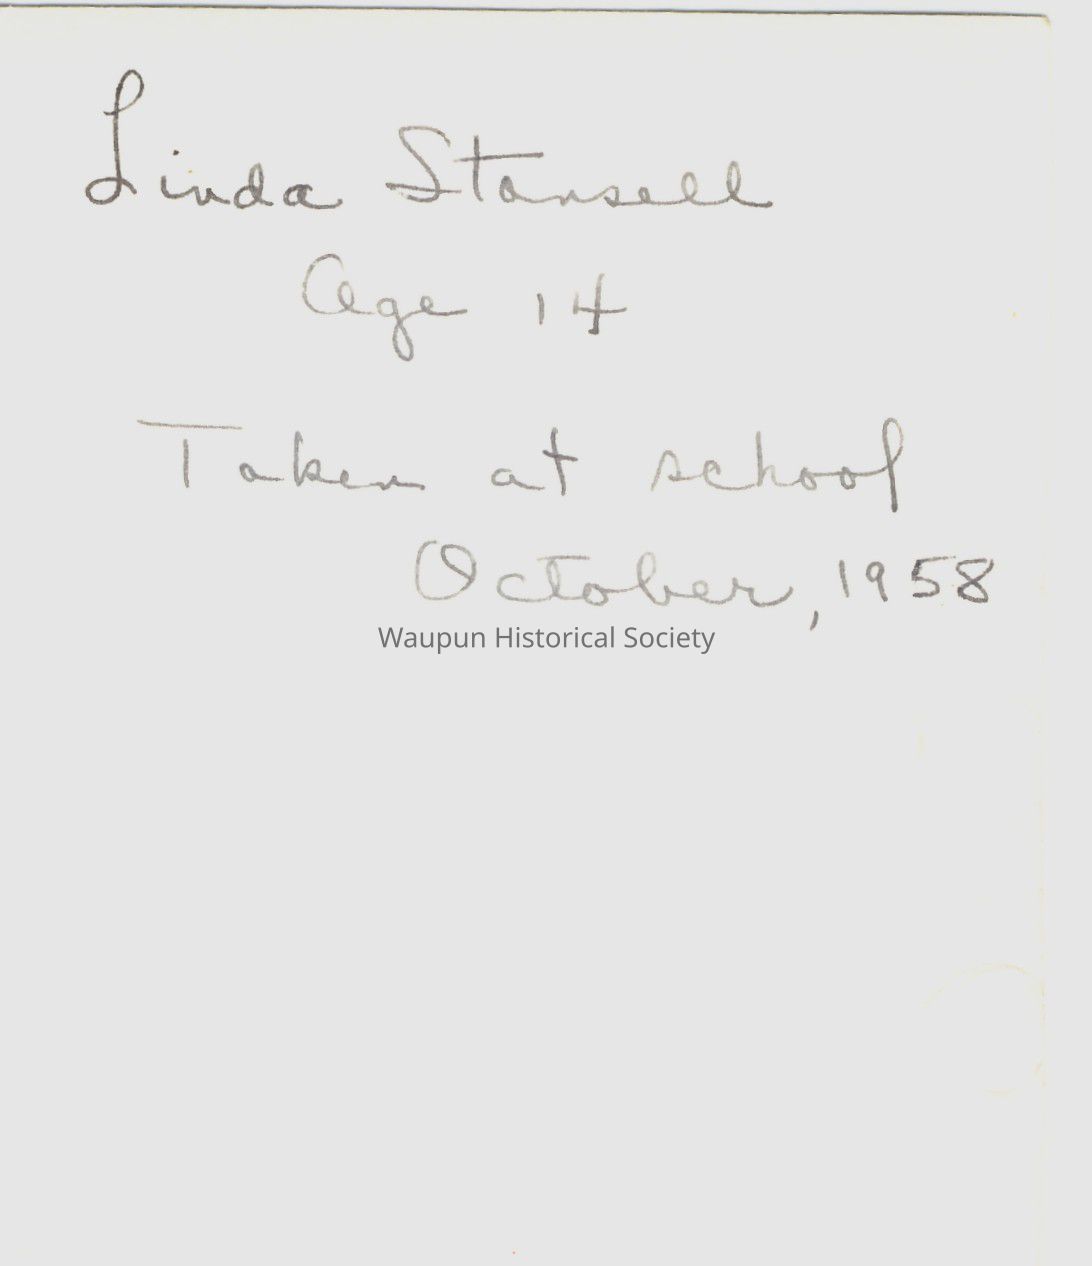 Linda Stansell
Age 14
Taken at school
October, 1958
Waupun Historical Society